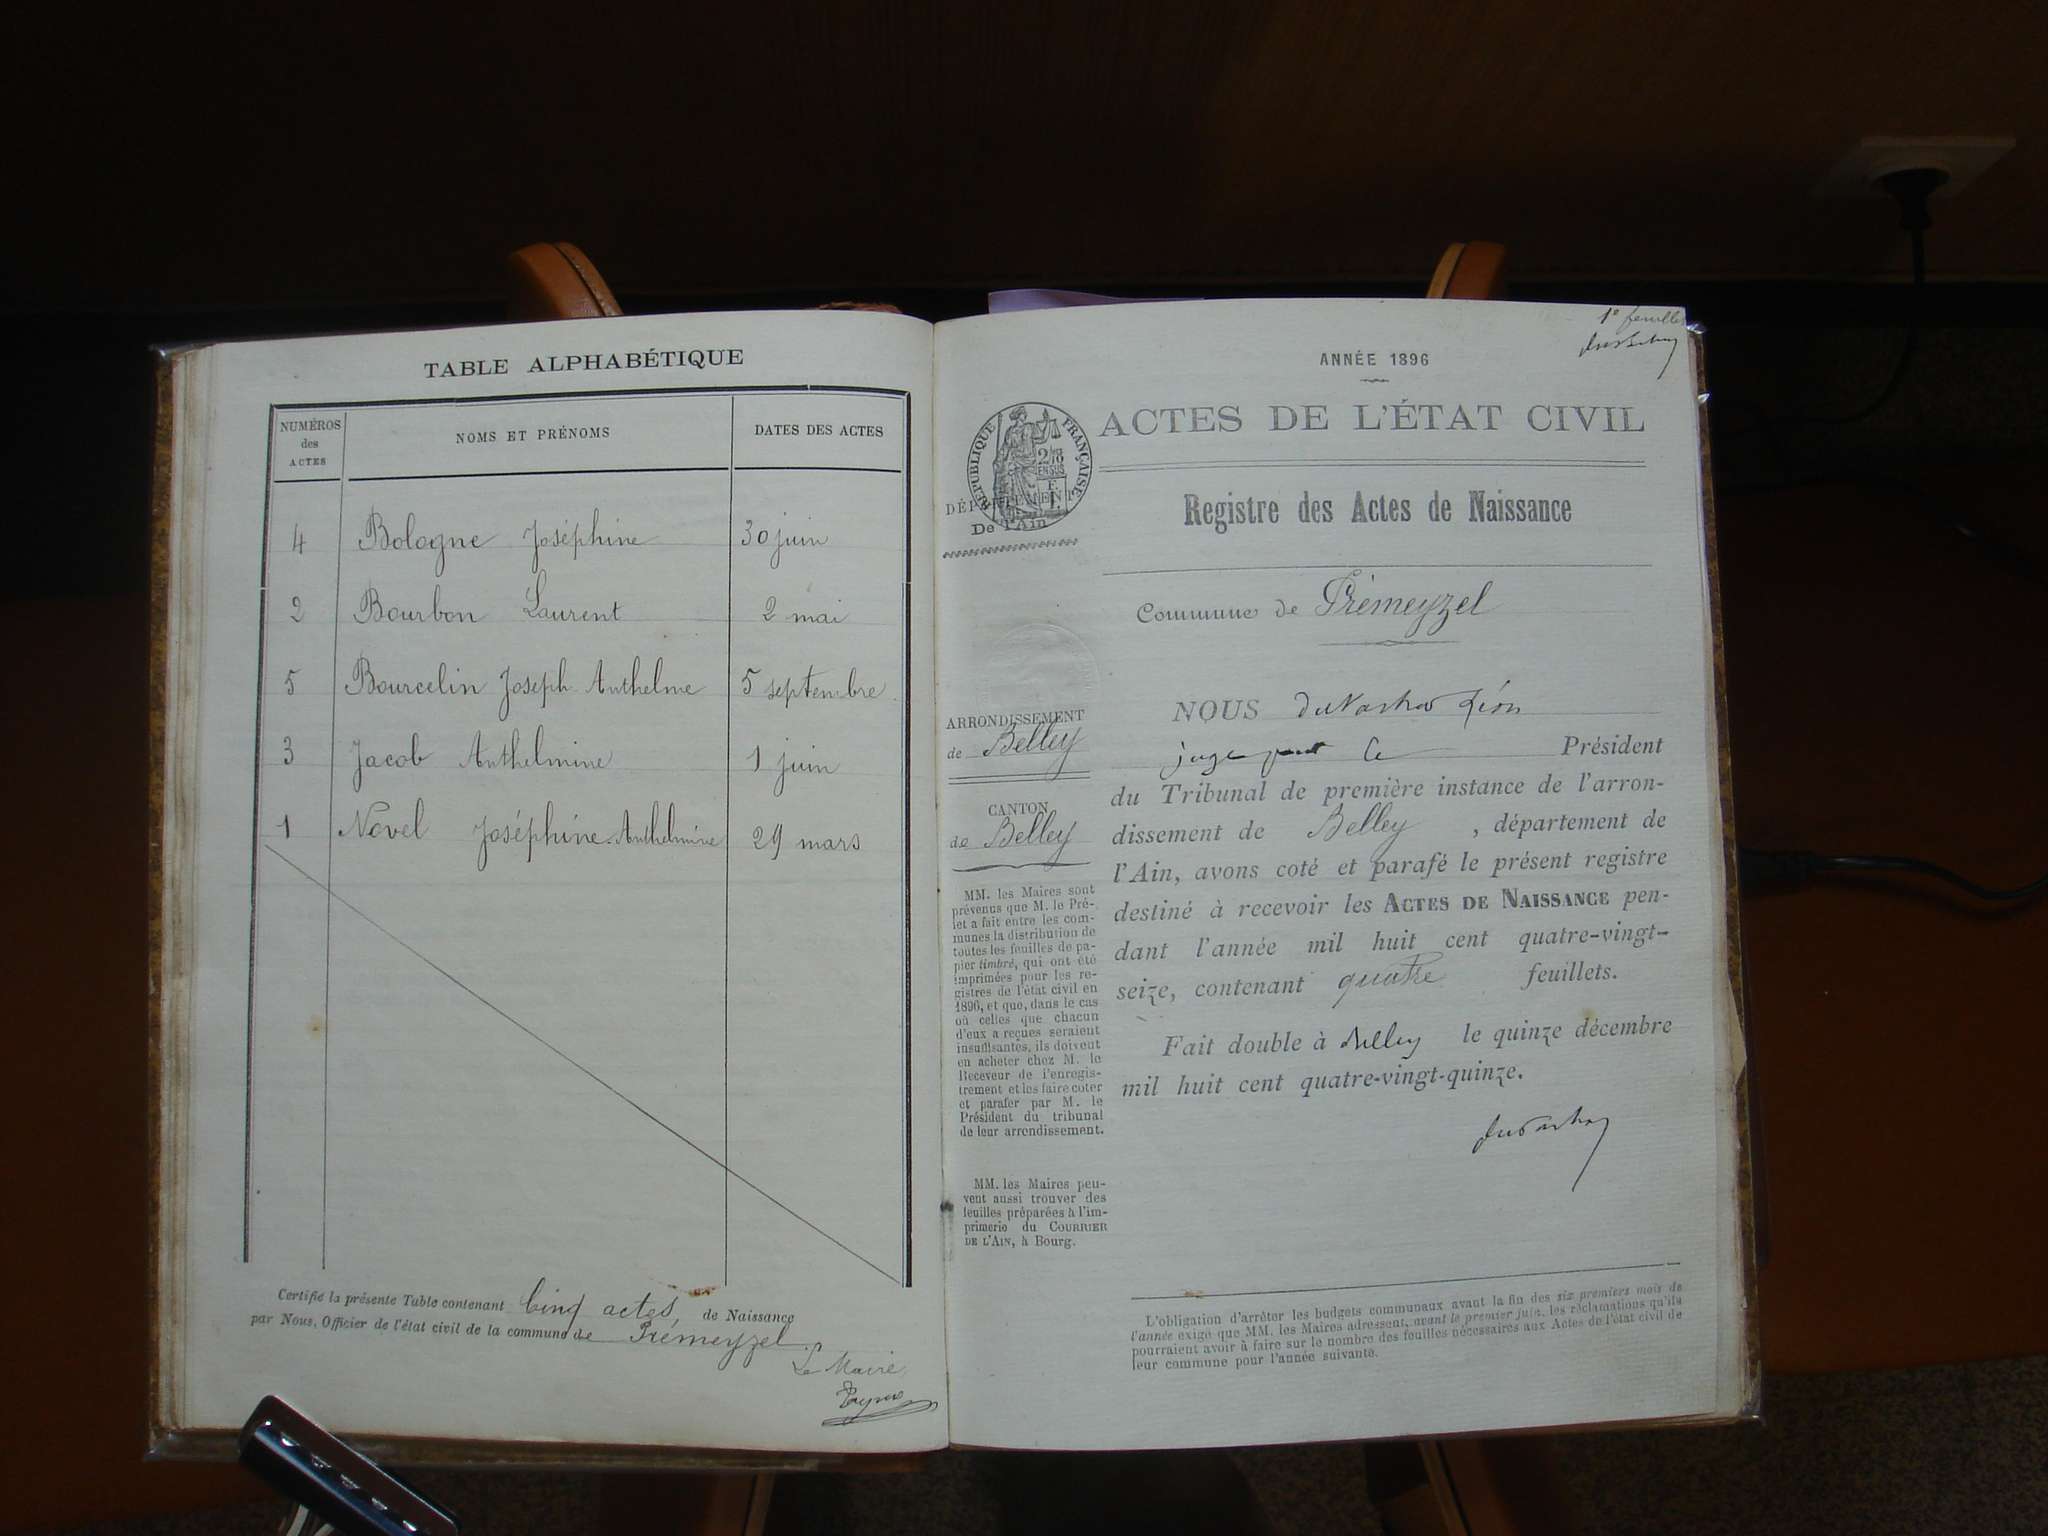 TABLE ALPHABÉTIQUE
NUMÉROS des ACTES NOMS ET PRÉNOMS DATES DES ACTES
4 Bologne Joséphine 30 juin
2 Bourbon Laurent 2 mai
5 Bourcelin Joseph Anthelme 5 septembre
3 Jacob Anthelmine 1 juin
1 Novel Joséphine Anthelmine 29 mars
Certifié la présente Table contenant Cinq actes de Naissance
par Nous, Officier de l'état civil de la commune de Prémeyzel
Le Maire
1e feuillet
ANNÉE 1896
RÉPUBLIQUE FRANÇAISE
ACTES DE L'ÉTAT CIVIL
DÉPARTEMENT
De l'Ain
Registre des Actes de Naissance
Commune de Prémeyzel
ARRONDISSEMENT
de Belley
CANTON
de Belley
MM. les Maires sont
prévenus que M. le Pré-
fet a fait entre les com-
munes la distribution de
toutes les feuilles de pa-
pier timbré, qui ont été
imprimées pour les re-
gistres de l'état civil en
1896, et que, dans le cas
où celles que chacun
d'eux a reçues seraient
insuffisantes, ils doivent
en acheter chez M. le
Receveur de l'enregis-
trement et les faire coter
et parafer par M. le
Président du tribunal
de leur arrondissement.
MM. les Maires peu-
vent aussi trouver des
feuilles préparées à l'im-
primerie du COURRIER
DE L'AIN, à Bourg.
NOUS Léon
juge pour le Président
du Tribunal de première instance de l'arron-
dissement de Belley, département de
l'Ain, avons coté et parafé le présent registre
destiné à recevoir les ACTES DE NAISSANCE pen-
dant l'année mil huit cent quatre-vingt-
seize, contenant quatre feuillets.
Fait double à Belley le quinze décembre
mil huit cent quatre-vingt-quinze.
L'obligation d'arrêter les budgets communaux avant la fin des six premiers mois de
l'année exige que MM. les Maires adressent, avant le premier juin, les réclamations qu'ils
pourraient avoir à faire sur le nombre des feuilles nécessaires aux Actes de l'état civil de
leur commune pour l'année suivante.